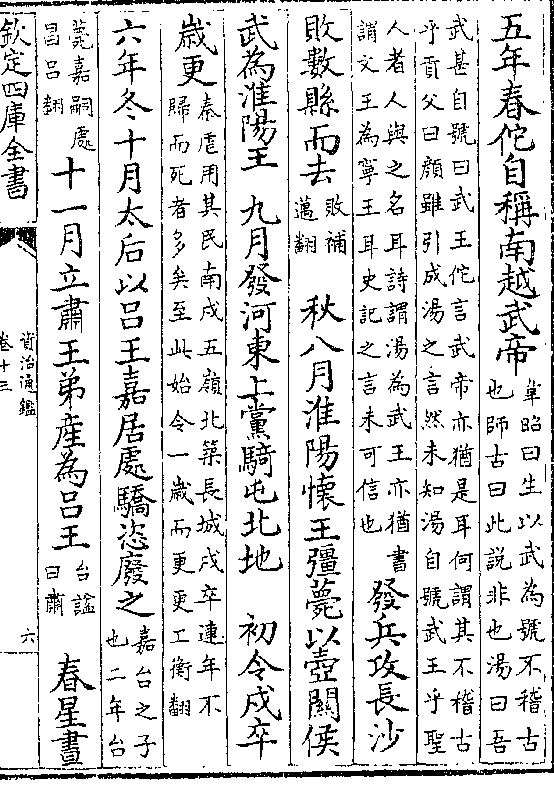 五年春佗自稱南越武帝韋昭曰生以武為號不稽古
也師古曰此說非也湯曰吾
武甚自號曰武王佗言武帝亦猶是耳何謂其不稽古
乎貢父曰顔雖引成湯之言然未知湯自號武王乎聖
人者人與之名耳詩謂湯為武王亦猶書
謂文王為寧王耳史記之言未可信也發兵攻長沙
敗數縣而去敗補
邁翻秋八月淮陽懷王彊薨以壺關侯
武為淮陽王九月發河東上黨騎屯北地初令戍卒
歲更秦虐用其民南戍五嶺北築長城戍卒連年不
歸而死者多矣至此始令一歲而更更工衡翻
六年冬十月太后以吕王嘉居處驕恣廢之嘉台之子
也二年台
薨嘉嗣處
昌吕翻十一月立肅王弟產為吕王台諡
曰肅春星晝
欽定四庫全書
資治通鑑
卷十三
六